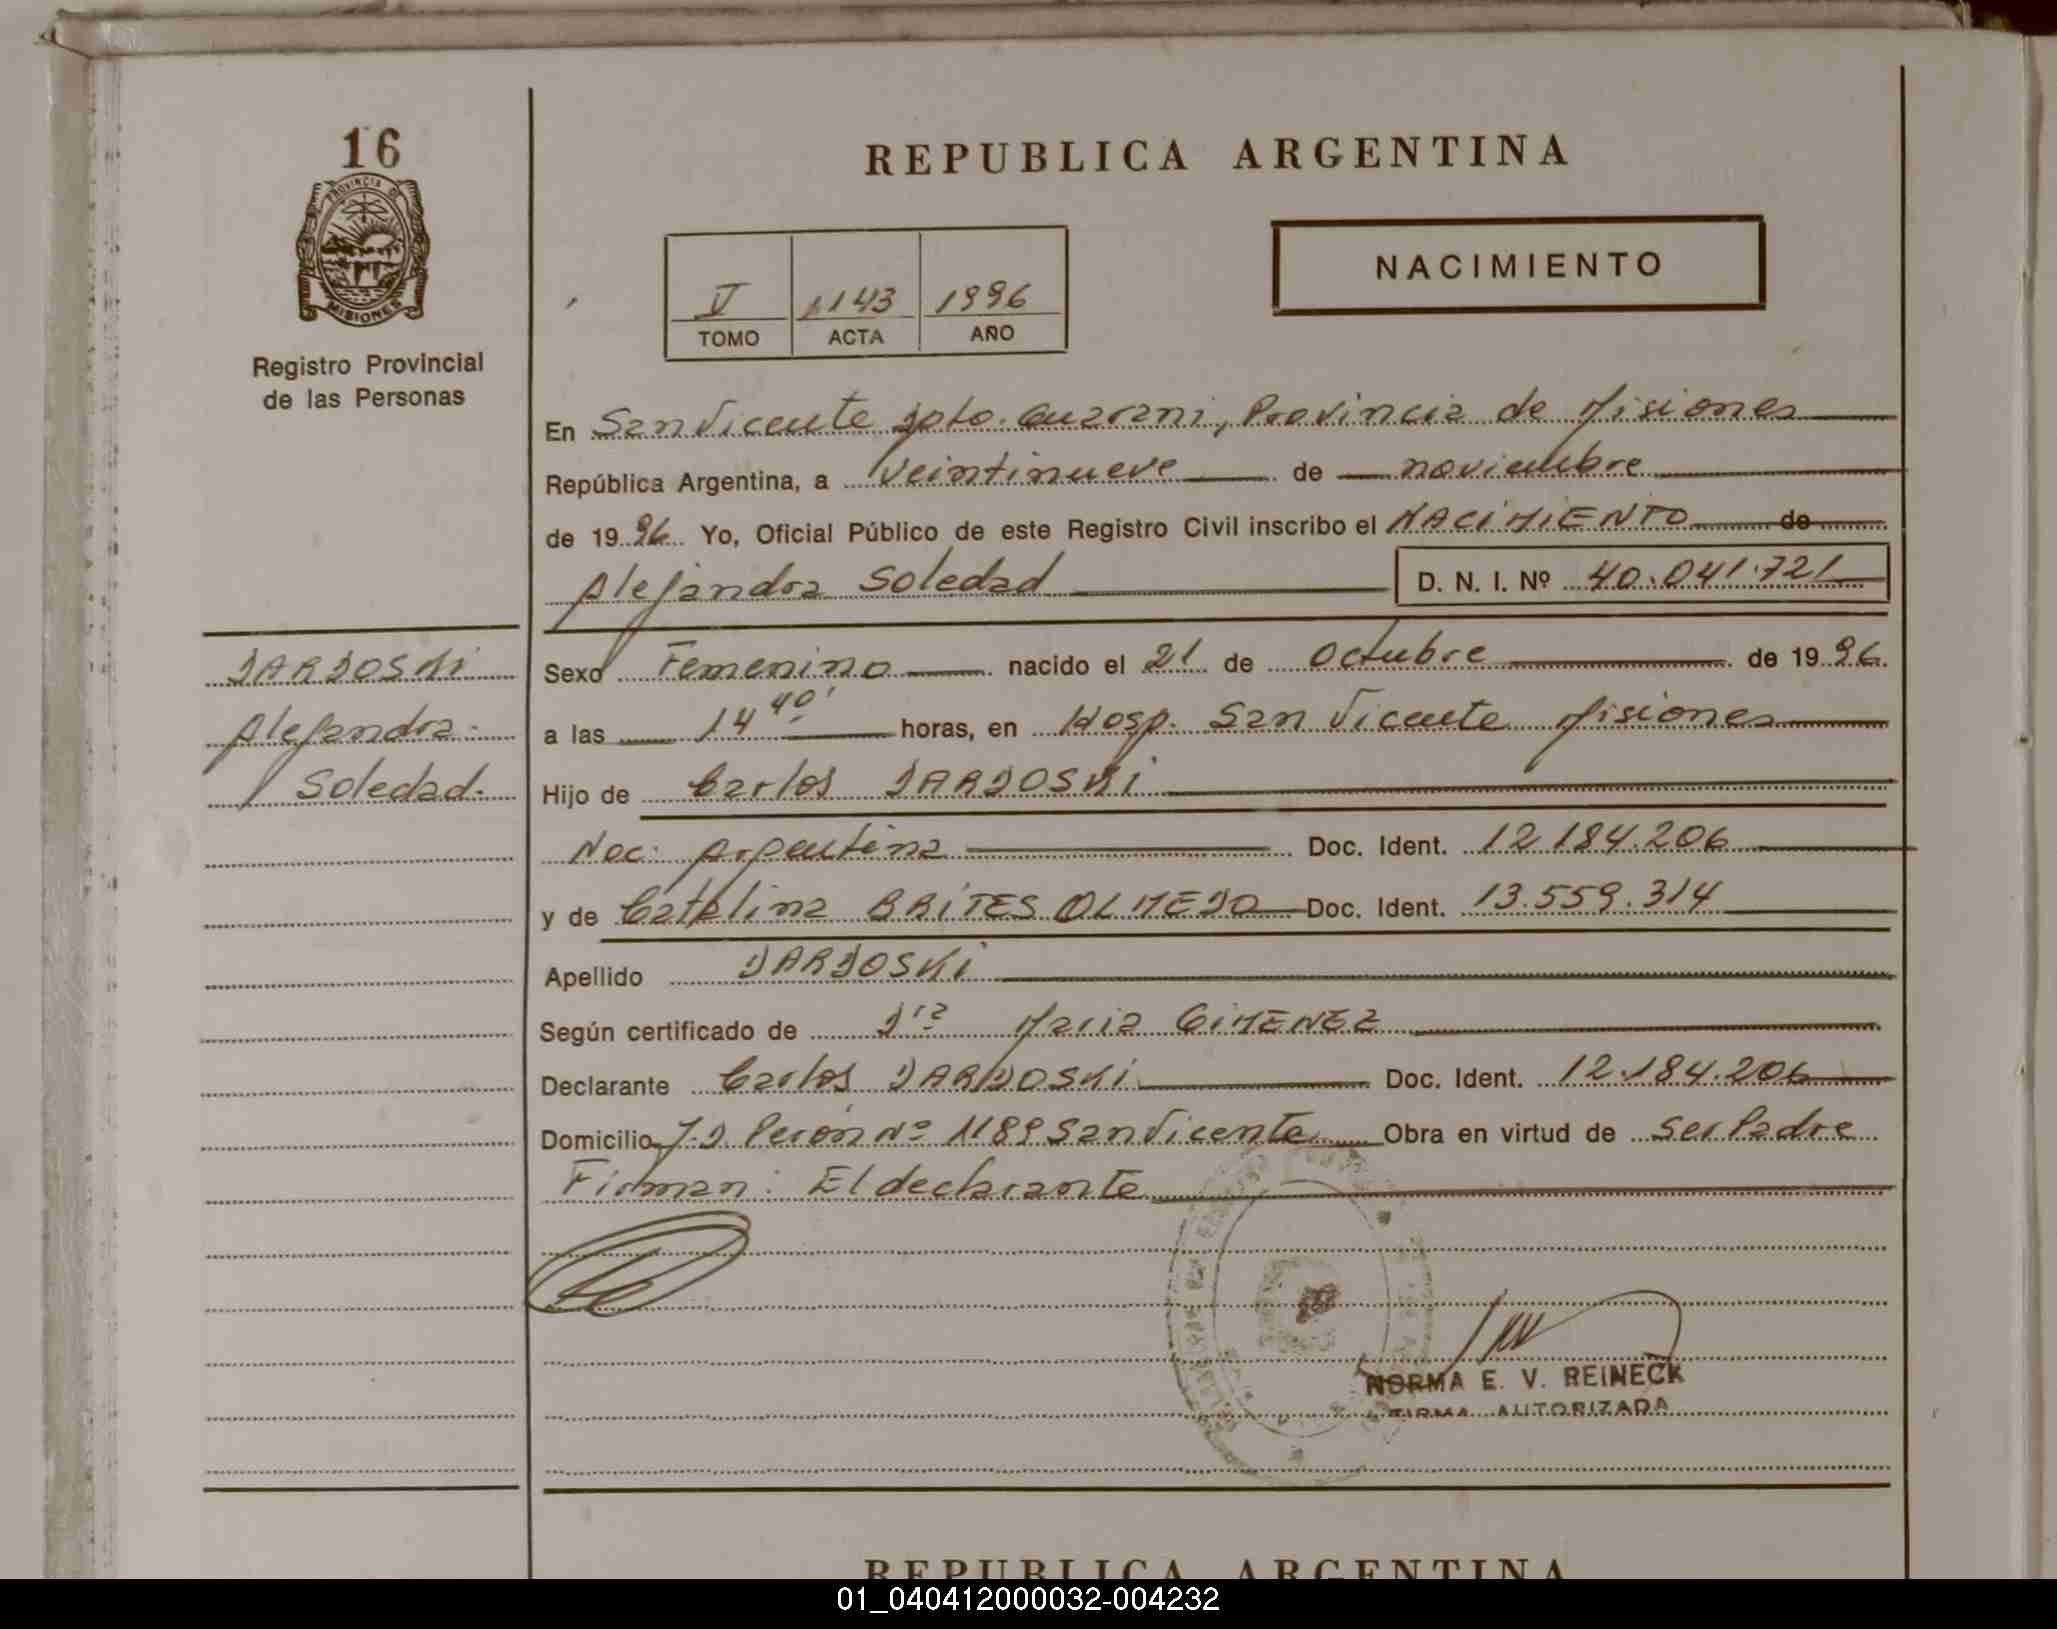 16
PROVINCIA DE
MISIONES
Registro Provincial
de las Personas
REPUBLICA ARGENTINA
V 1143 1996
TOMO ACTA AÑO
NACIMIENTO
En San Vicente Dpto. Guarani, Provincia de Misiones
República Argentina, a veintinueve de noviembre
de 1996 Yo, Oficial Público de este Registro Civil inscribo el NACIMIENTO de
Alejandra Soledad D. N. I. Nº 40.041.721
DARDOSKi
Alejandra
Soledad.
Sexo Femenino nacido el 21 de octubre de 1996.
a las 14 40' horas, en Hosp. San Vicente Misiones
Hijo de Carlos DARDOSKi
Nac. Argentina Doc. Ident. 12.184.206
y de Catalina BRiTES OLMEDO Doc. Ident. 13.559.314
Apellido DARDOSKi
Según certificado de Dra Maria GiMENEZ
Declarante Carlos DARDOSKi Doc. Ident. 12.184.206
Domicilio J.D Perón Nº 1189 San Vicente Obra en virtud de ser Padre
Firman: El declarante
NORMA E. V. REINECK
FIRMA AUTORIZADA
REPUBLICA ARGENTINA
01_040412000032-004232